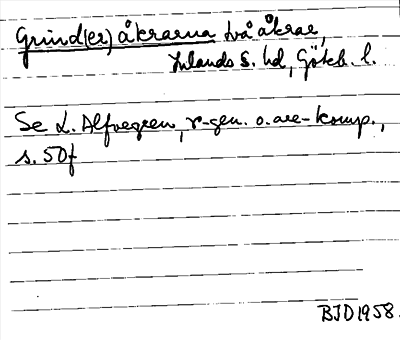 Grind(er)åkrarna två åkrar,
Inlands S. hd, Götеb. l.
Se L. Alfvegren, r-gen. o. are-komp.,
s. 50f
BJD 1958.